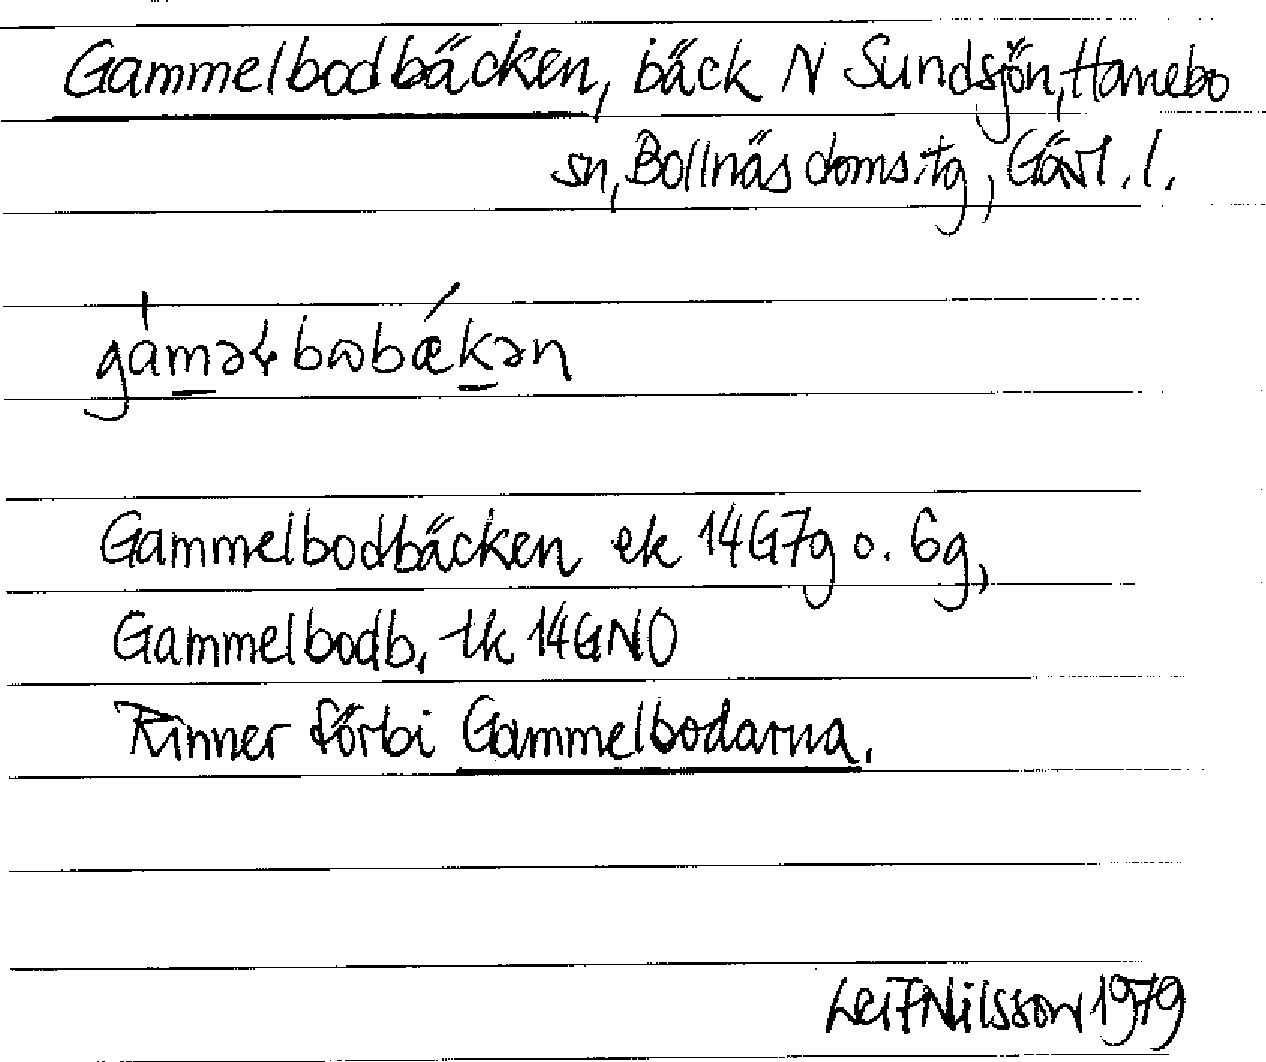 Gammelbodbäcken, bäck N Sundsjön, Hanebo
sn, Bollnäs doms.tg, Gävl. l.
gaməɬbωbækən
Gammelbodbäcken ek 14G7g o. 6g,
Gammelbodb. tk 14GNO
Rinner förbi Gammelbodarna.
Leif Nilsson 1979